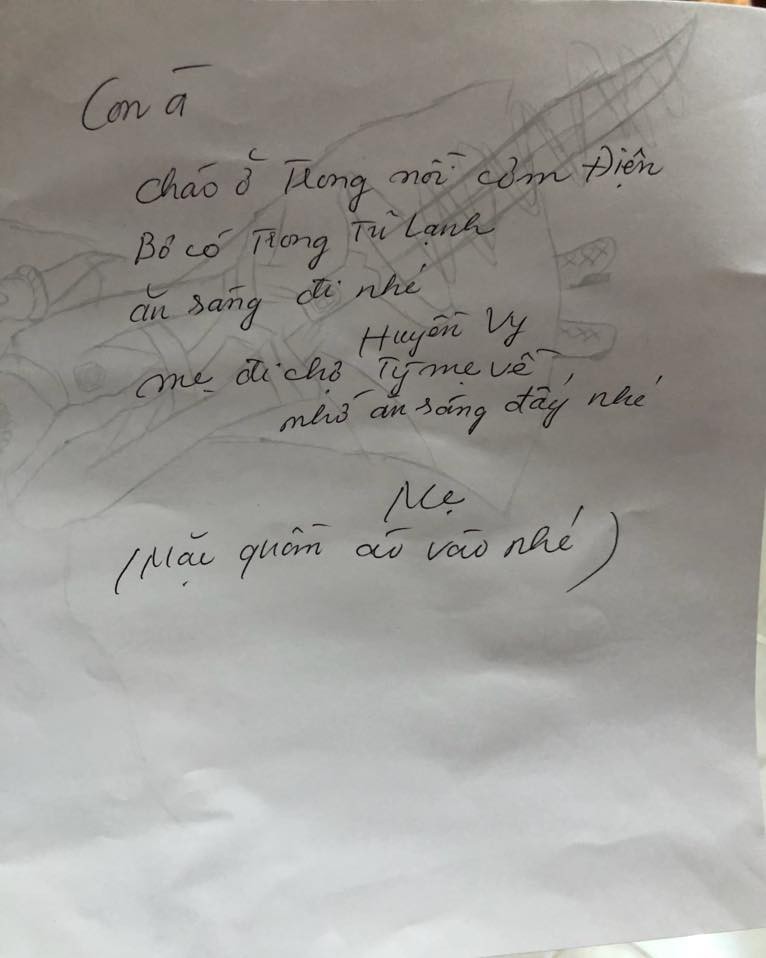 Con à
cháo ở trong nồi cơm điện
Bơ có trong Tủ lạnh
ăn sáng đi nhé
Huyền Vy
mẹ đi chợ Tý mẹ về
nhớ ăn sáng đấy nhé
Mẹ
(Mặc quần áo vào nhé)